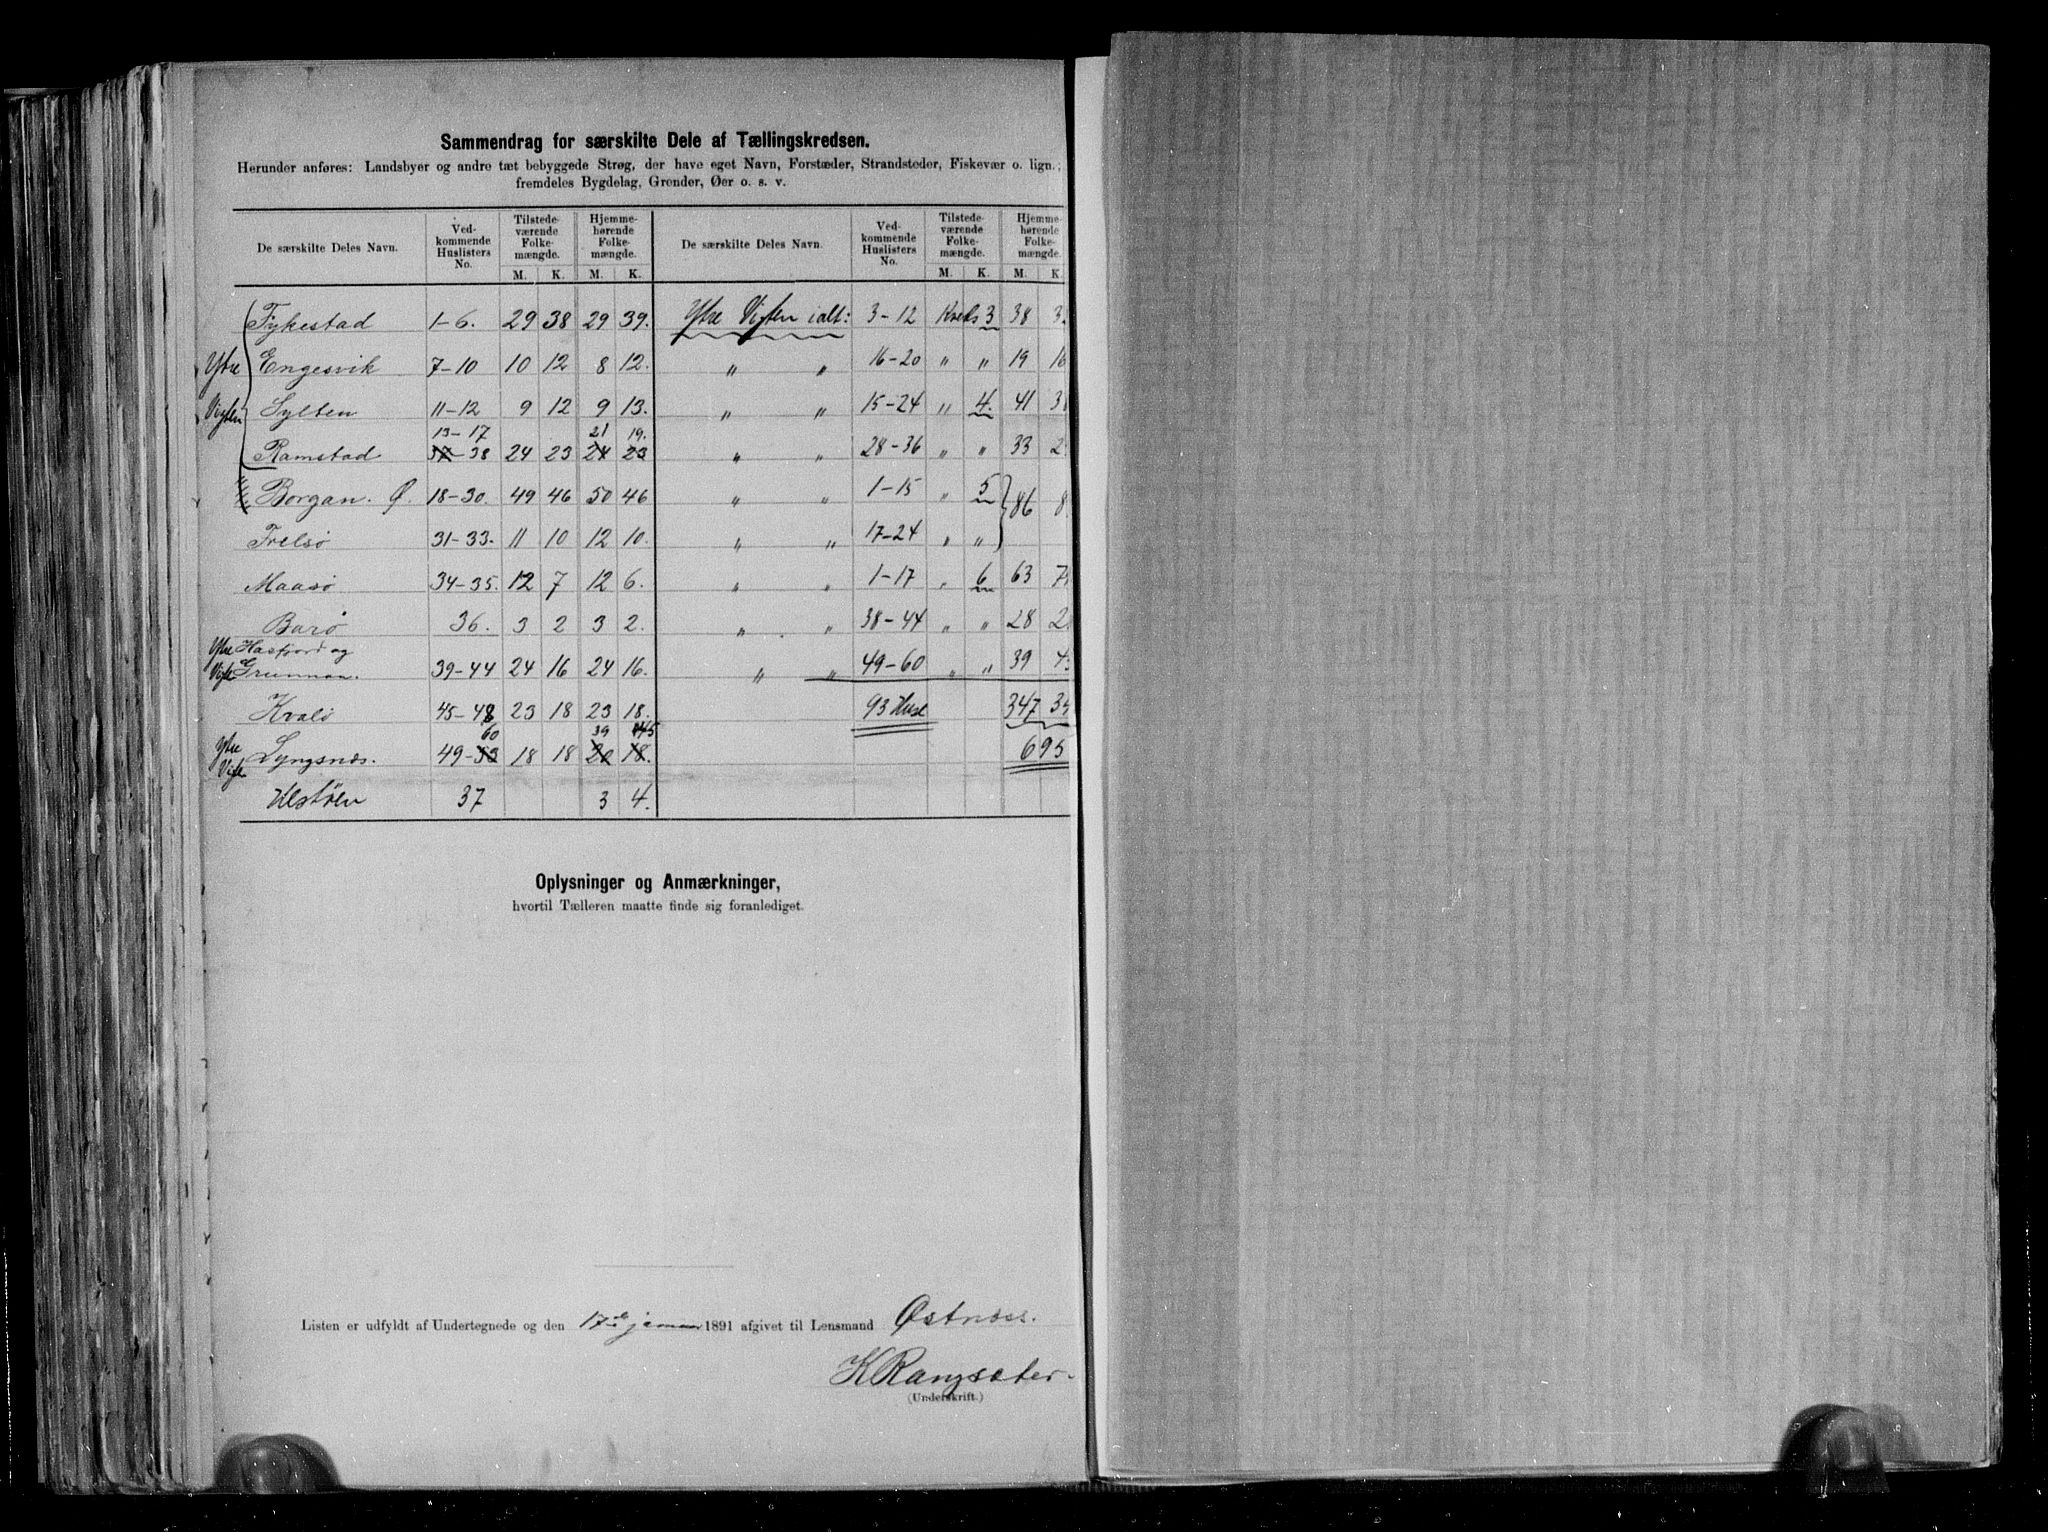 Sammendrag for særskilte Dele af Tællingskredsen.
Herunder anføres: Landsbyer og andre tæt bebyggede Strøg, der have eget Navn, Forstæder, Strandsteder, Fiskevær o. lign.;
fremdeles Bygdelag, Grender, Øer o. s. v.
De særskilte Deles Navn. Ved-kommende Huslisters No. Tilstede-værende Folke-mængde. M. K. Hjemme-hørende Folke-mængde. M. K. De særskilte Deles Navn. Ved-kommende Huslisters No. Tilstede-værende Folke-mængde. M. K. Hjemme-hørende Folke-mængde. M. K.
Fykestad 1-6. 29 38 29 39. Ytre Vigten ialt: 3-12 Kreds 3 38
Ytre Engesvik 7-10 10 12 8 12. " " 16-20 " " 19 16
Vigten Sylten 11-12 9 12 9 13. " " 15-24 " 4. 41
13-17 21 19.
Ramstad 37 38 24 23 24 23 " " 28-36 " " 33
Borgan. Ø. 18-30. 49 46 50 46 " " 1-15 " 5 86
Frelsø 31-33. 11 10 12 10. " " 17-24 " "
Maasø 34-35. 12 7 12 6. " " 1-17 " 6 63
Barø 36. 3 2 3 2. " " 38-44 " " 28
Ytre Hasfjord og
Vigt. Grunnan. 39-44 24 16 24 16. " " 49-60 " " 39
Kvalø 45-48 23 18 23 18. 93 Huse 347
60 39 45
Ytre Vigt. Lyngsnæs. 49-53 18 18 20 18. 695
37 3 4.
Oplysninger og Anmærkninger,
hvortil Tælleren maatte finde sig foranlediget.
Listen er udfyldt af Undertegnede og den 17de januar 1891 afgivet til Lensmand Østnæss.
K Rangsæter.
(Underskrift.)